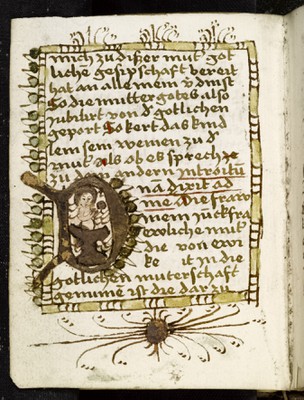 mich zu dißer mut' got
lichē gesipschaft bereit
hat an alle mein v'dinst
So die mutter gotes also
Jubilirt von d' gotlichen
geport So kert das kind
lem sein wemen zu d'
muť als ob es sprech ze
zu dem andern Introitū
na dixit ad
me die fraw
mein juckfra
wliche muť
die von ewi
ke it in die
gotlichen muterschaft
genumē ist die dar zu